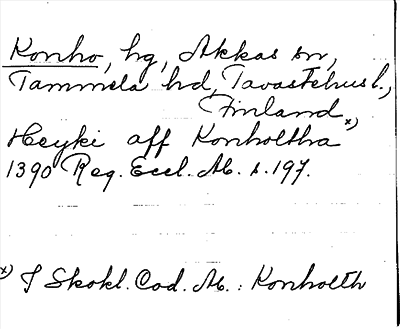 Konho, hg, Akkas sn,
Tammela hd, Tavastehus l.,
Finland.
Heyki aff Konholtha x)
1390 Reg. Eccl. Ab. s. 197.
x) I Skokl. Cod. Ab.: Konholth